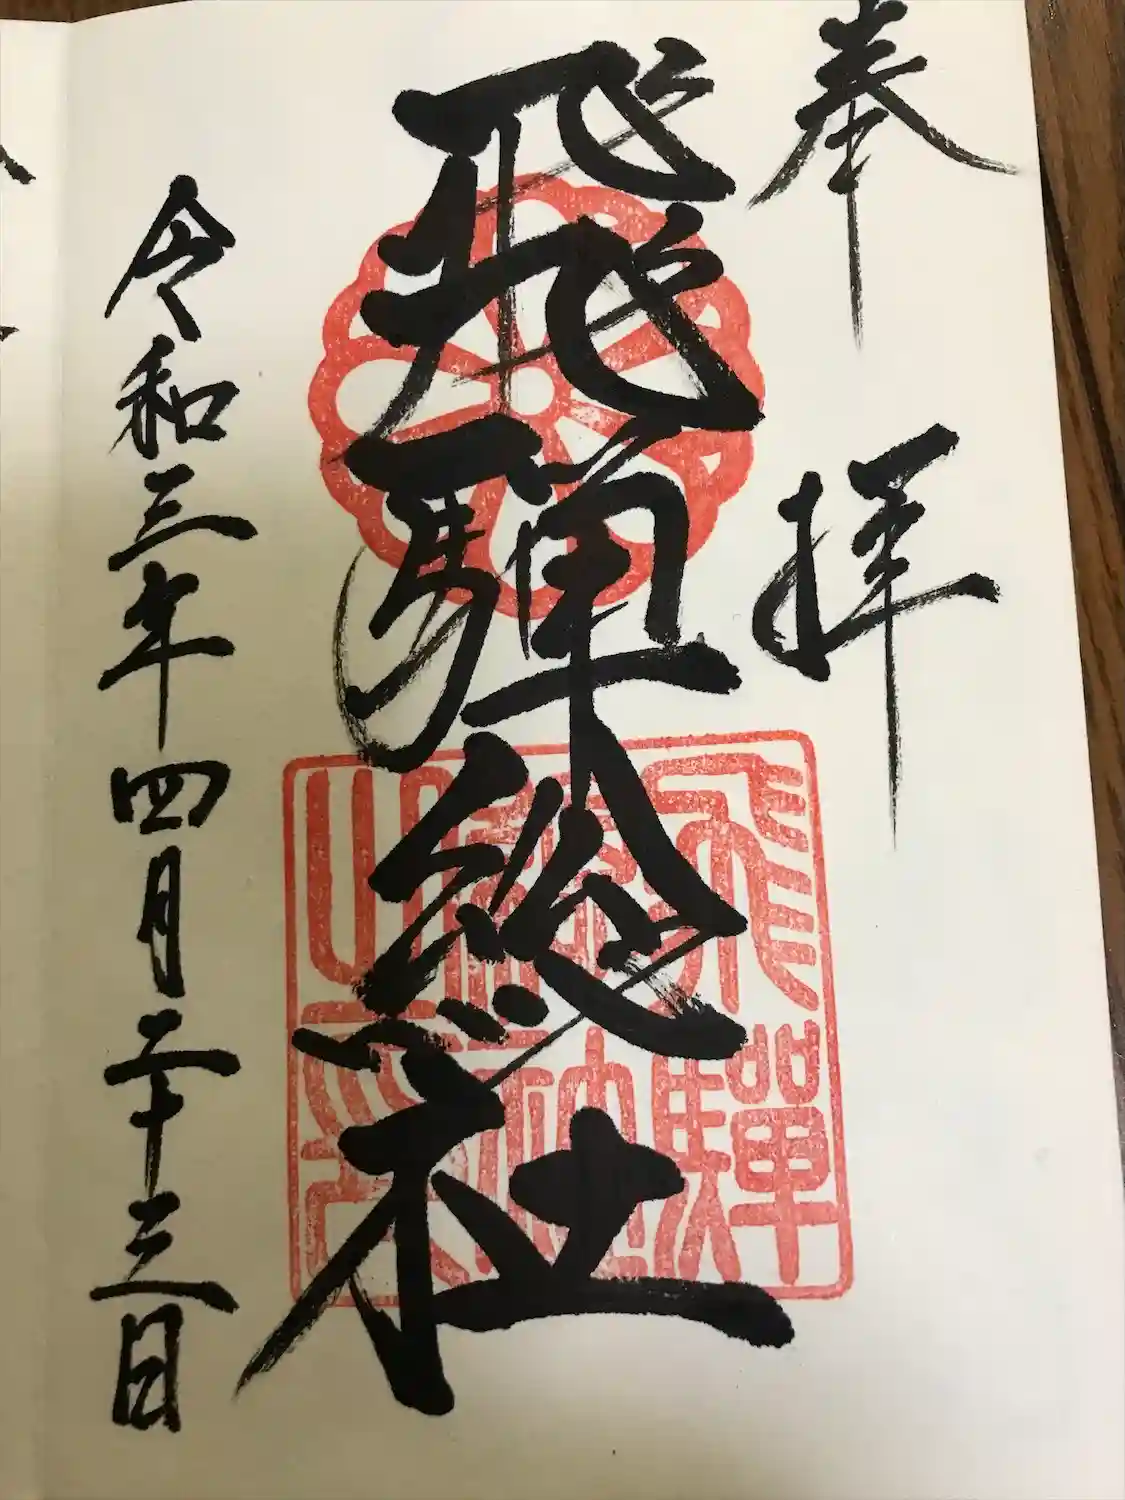 奉拝
飛騨総社
飛驒總社之印
令和三年四月二十三日